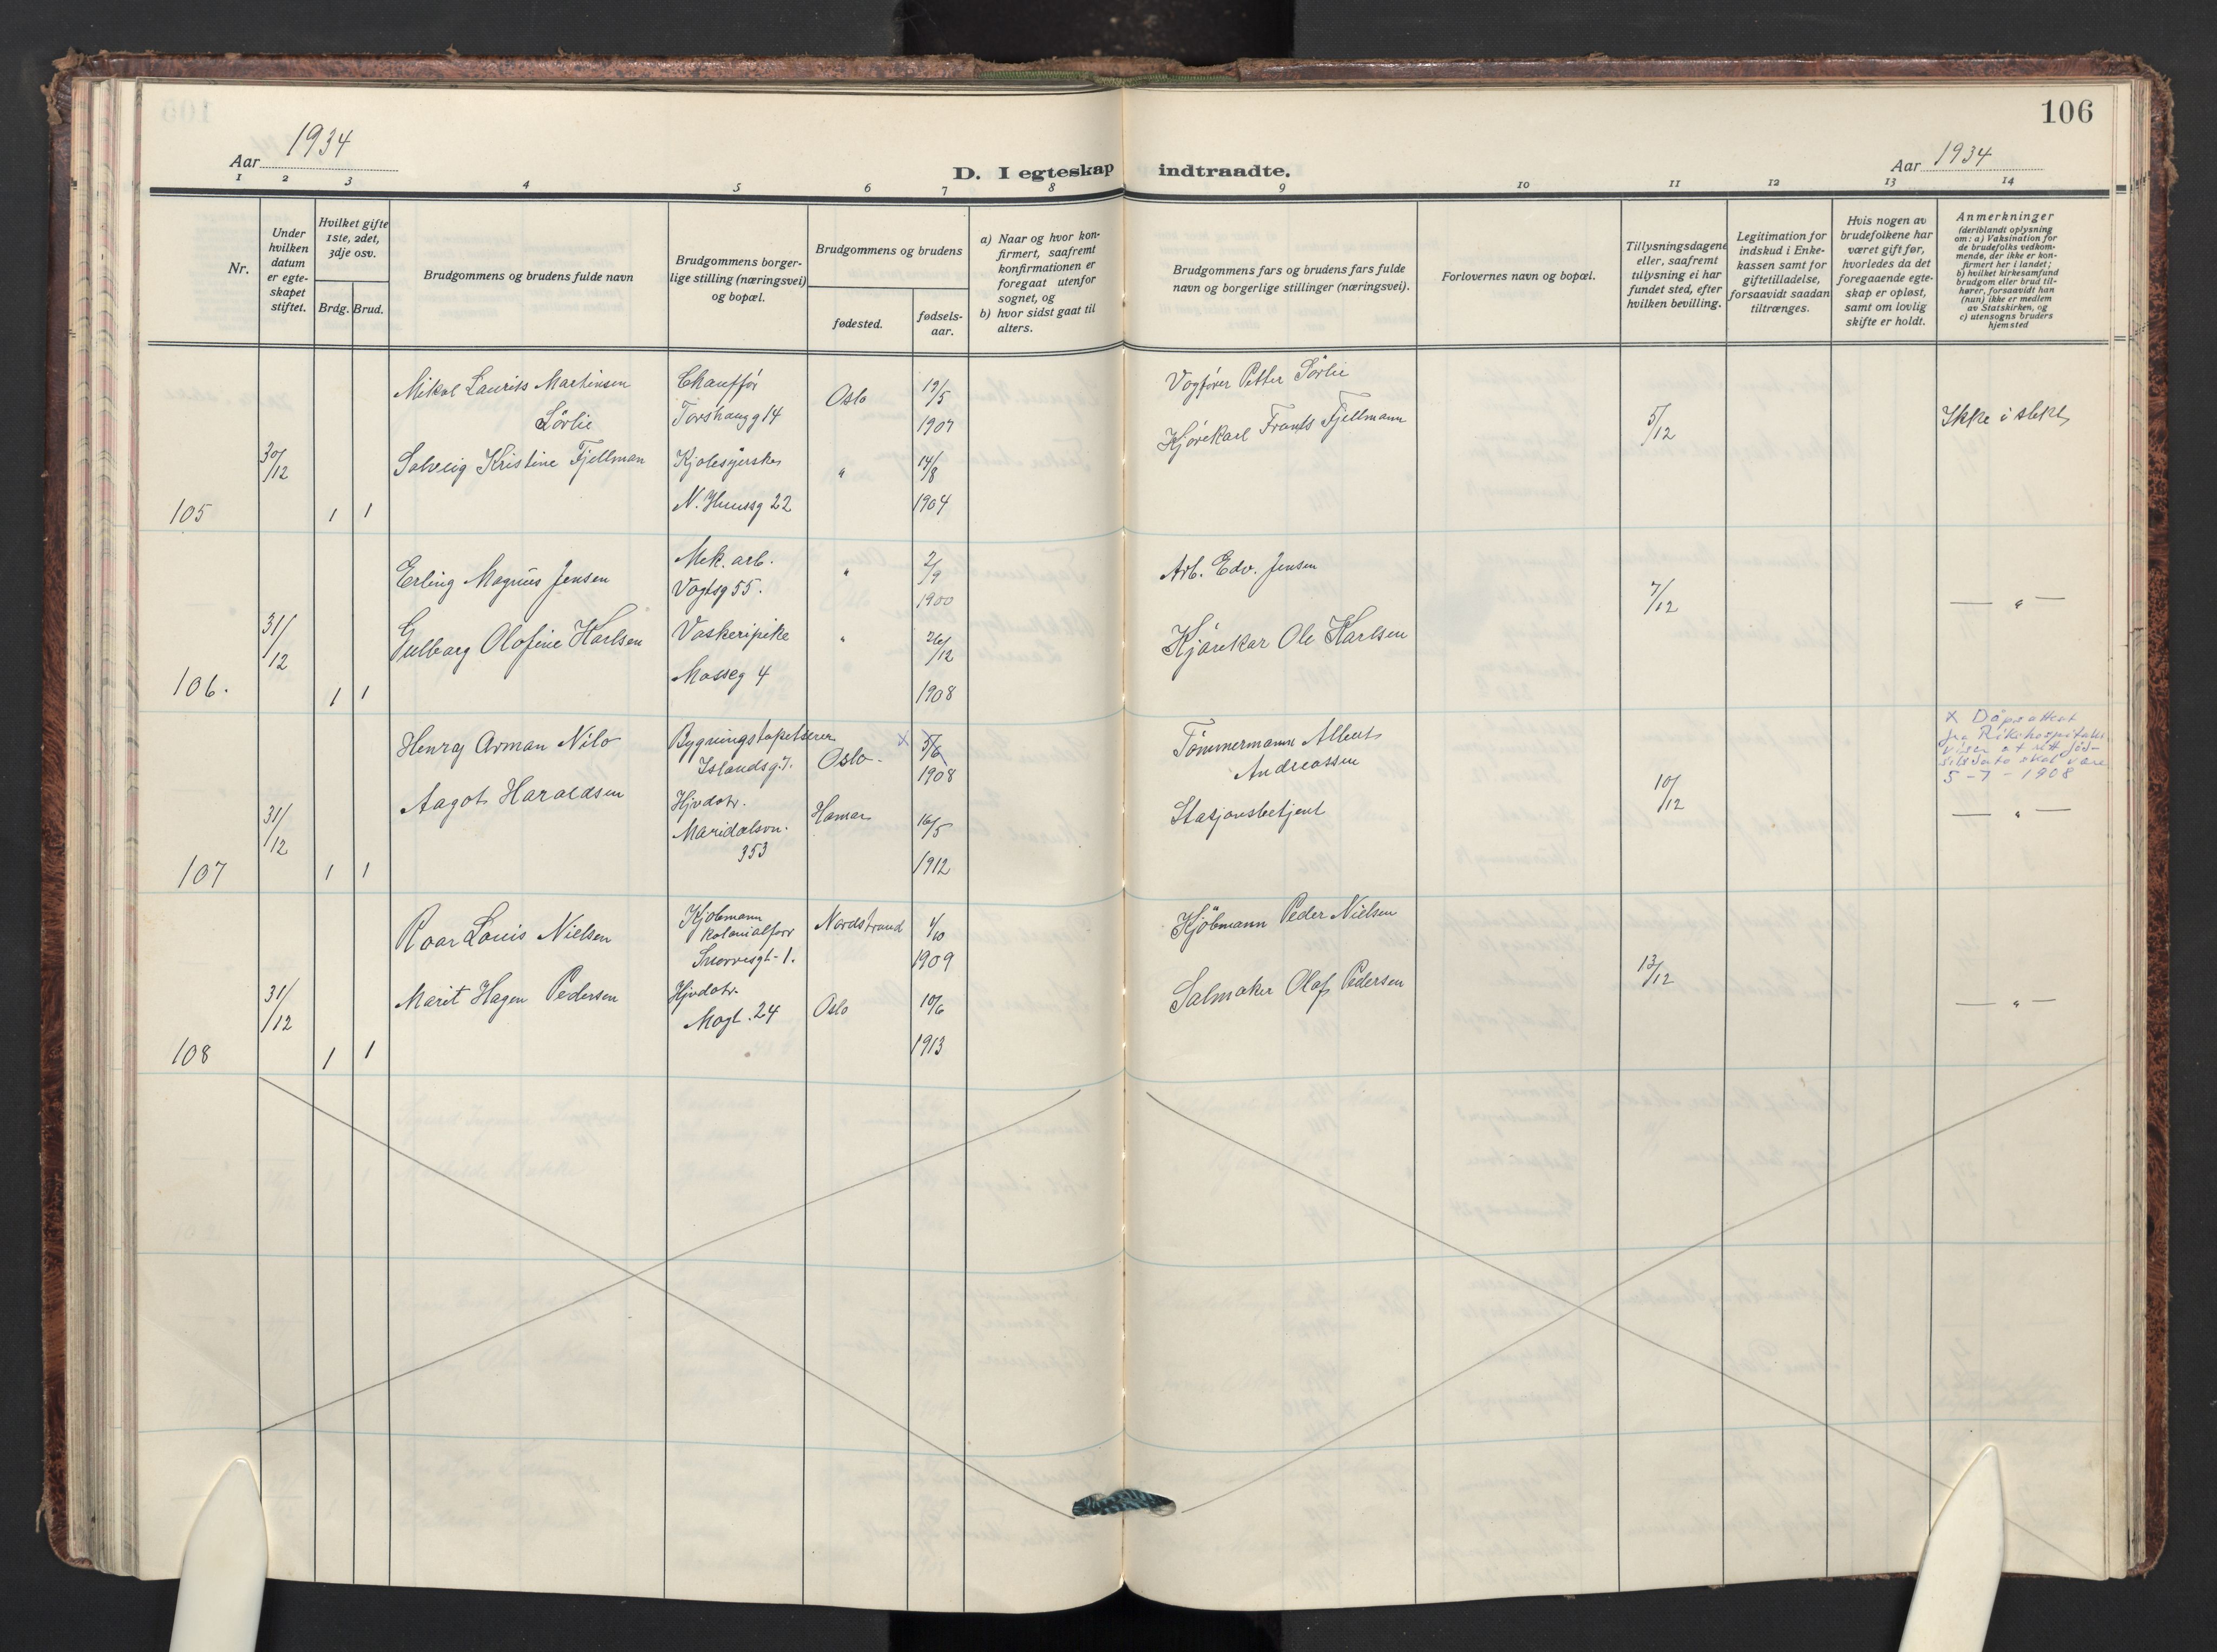 106
Aar 1934
D. I egteskap indtraadte.
Aar 1934
1 2 3 4 5 6 7 8 9 10 11 12 13 14
Nr.
Under hvilken datum er egteskapet stiftet.
Hvilket gifte 1ste, 2det, 3dje osv.
Brdg. Brud.
Brudgommens og brudens fulde navn
Brudgommens borgerlige stilling (næringsvei) og bopæl.
Brudgommens og brudens
fødested. fødselsaar.
a) Naar og hvor konfirmert, saafremt konfirmationen er foregaat utenfor sognet, og
b) hvor sidst gaat til alters.
Brudgommens fars og brudens fars fulde navn og borgerlige stillinger (næringsvei).
Forlovernes navn og bopæl.
Tillysningsdagene eller, saafremt tillysning ei har fundet sted, efter hvilken bevilling.
Legitimation for indskud i Enkekassen samt for giftetilladelse, forsaavidt saadan tiltrænges.
Hvis nogen av brudefolkene har været gift før, hvorledes da det foregaaende egteskap er opløst, samt om lovlig skifte er holdt.
Anmerkninger
(deriblandt oplysning om: a) Vaksination for de brudefolks vedkommende, der ikke er konfirmert her i landet;
b) hvilket kirkesamfund brudgom eller brud tilhører, forsaavidt han (hun) ikke er medlem av Statskirken, og
c) utensogns bruders hjemsted
105
30/12
1 1
Mikal Laurits Martinsen
Sörlie
Solveig Kristine Fjellman
Chauffør
Torshaugg 14
Kjolesyerske
N. Huusg 22
Oslo
"
19/5
1907
14/8
1904
Vognfører Petter Sörlie
Kjørekarl Frants Fjellmann
5/12
Ikke i slekt
106.
31/12
1 1
Erling Magnus Jensen
Gulborg Olofine Karlsen
Mek. arb.
Vogtsg 55.
Vaskeripike
Mosseg 4
"
"
2/9
1900
26/12
1908
Arb. Edv. Jensen
Kjörekar Ole Karlsen
7/12
— " —
107
31/12
1 1
Henry Arman Nilo
Aagot Haraldsen
Bygningstapetserer
Islandsg. 7.
Hjvdatr.
Maridalsvn.
353
Oslo.
Hamar
x 5/6
1908
16/5
1912
Tömmermann Albert
Andreassen
Stasjonsbetjent
10/12
x Döpsattest
fra Rikshospitalet
viser at rett föd-
selsdato skal være
5-7-1908
— " —
108
31/12
1 1
Roar Louis Nielsen
Marit Hagen Pedersen
Kjøbmann
Kolonialforr
Snorresgt. 1.
Hjvdatr.
Mogt. 24
Nordstrand
Oslo
4/10
1909
10/6
1913
Kjöbmann Peder Nielsen
Salmaker Olaf Pedersen
13/12
— " —